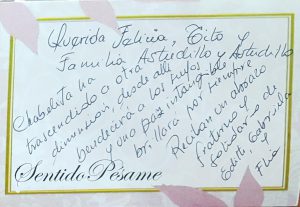 Querida Felicia, Tito y
Familia Astudillo y Astudillo
Chabelita ha
trascendido a otra
dimensión, desde allí
bendecirá a los suyos
y una Paz intangible
brillará por siempre.
Reciban un abrazo
fraterno y de
solidario
Edith, Gabriela
y
Flia
Sentido Pésame